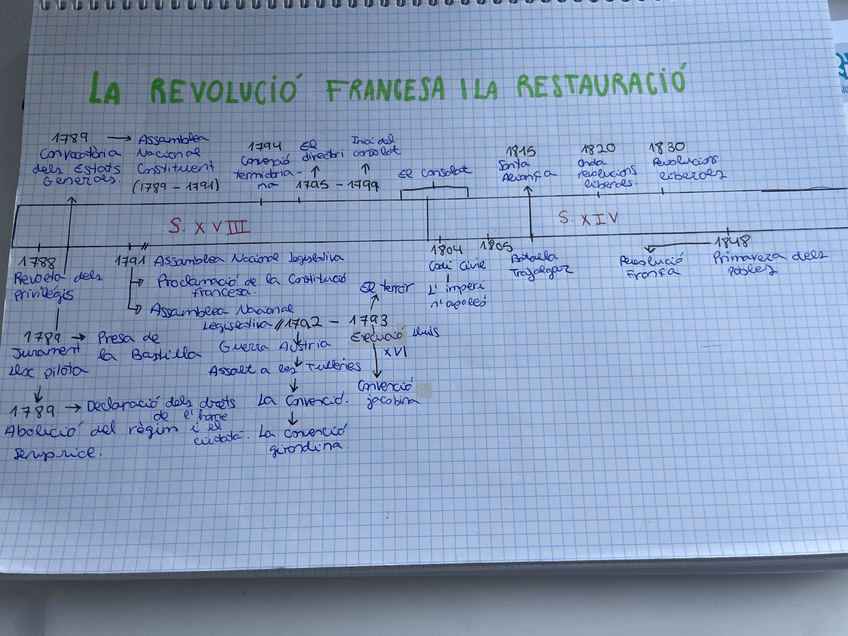 LA REVOLUCIÓ FRANCESA I LA RESTAURACIÓ
1789 → Assamblea
Convocatòria Nacional
dels Estats Constituent
Generals. (1789 - 1791)
1794 El
Convenció directori
termidoria-
na 1795 - 1799
Inici del
consolat
El consolat
1815
Santa
Aliança
1820
Onda
revolucions
liberals
1830
Revolucions
liberals
S. XVIII
S. XIV
1788
Revolta dels
privilegis
1789 → Presa de
Jurament la Bastilla
pilota
1789 → Declaració dels drets
de l'home
Abolició del règim i el
ciutatà.
1791 Assamblea Nacional legislativa
Proclamació de la Constitució
francesa.
Assamblea Nacional
Legislativa // 1792 - 1793
Guerra Austria
Assalt a les Tulleries
La Convenció.
La convenció
girondina.
El terror
Execució Lluis
XVI
Convenció
jacobina
1804
Codi Civil
L'imperi
n'apoleó
1805
Batalla
Trafalgar
1848
Revolució
França
Primavera dels
pobles